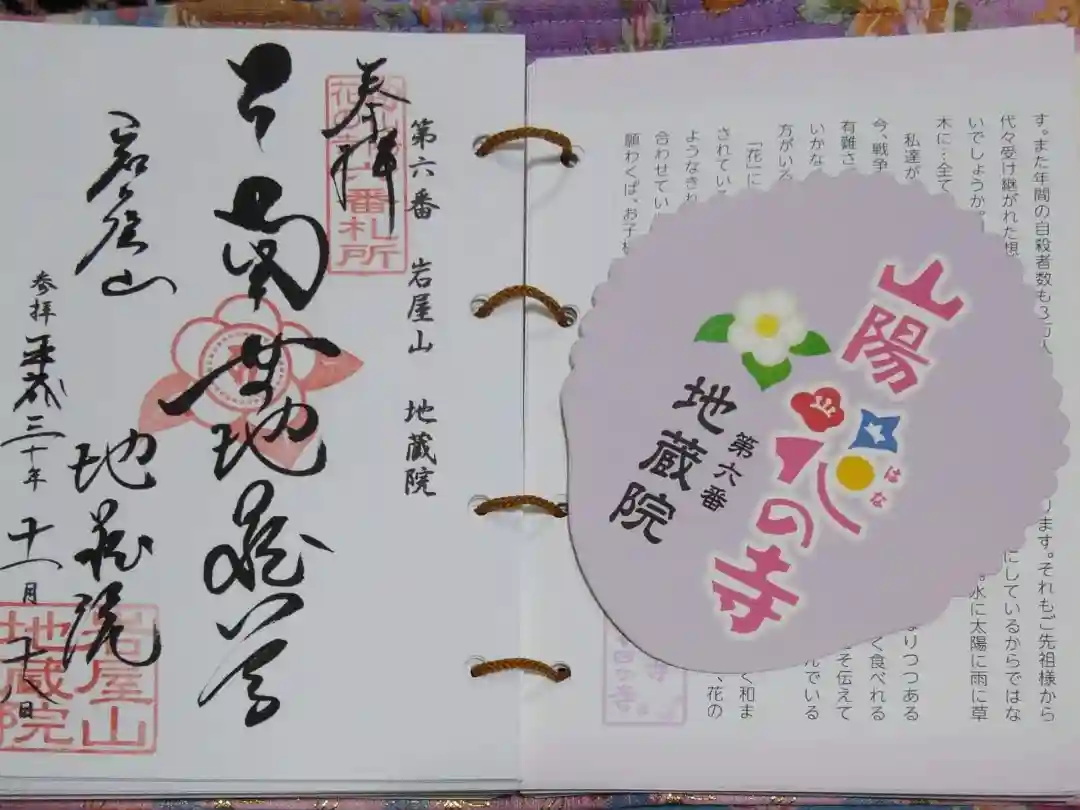 第六番 岩屋山 地蔵院
奉拝
番札所
南無地蔵尊
岩屋山
地蔵院
参拝 平成三十年 十一月 十八日
岩屋山
地蔵院
す。また年間の自殺者数も3万人 ります。それもご先祖様から
代々受け継がれた想 にしているからではな
いでしょうか。 水に太陽に雨に草
木に…全て
私達が なりつつある
今、戦争 く食べれる
有難さ そ伝えて
いかな んでいる
方がいる
「花」に く和ま
されている 、花の
ようなきれ
合わせてい
願わくば、お子
山陽
花の寺
はな
第六番
地蔵院